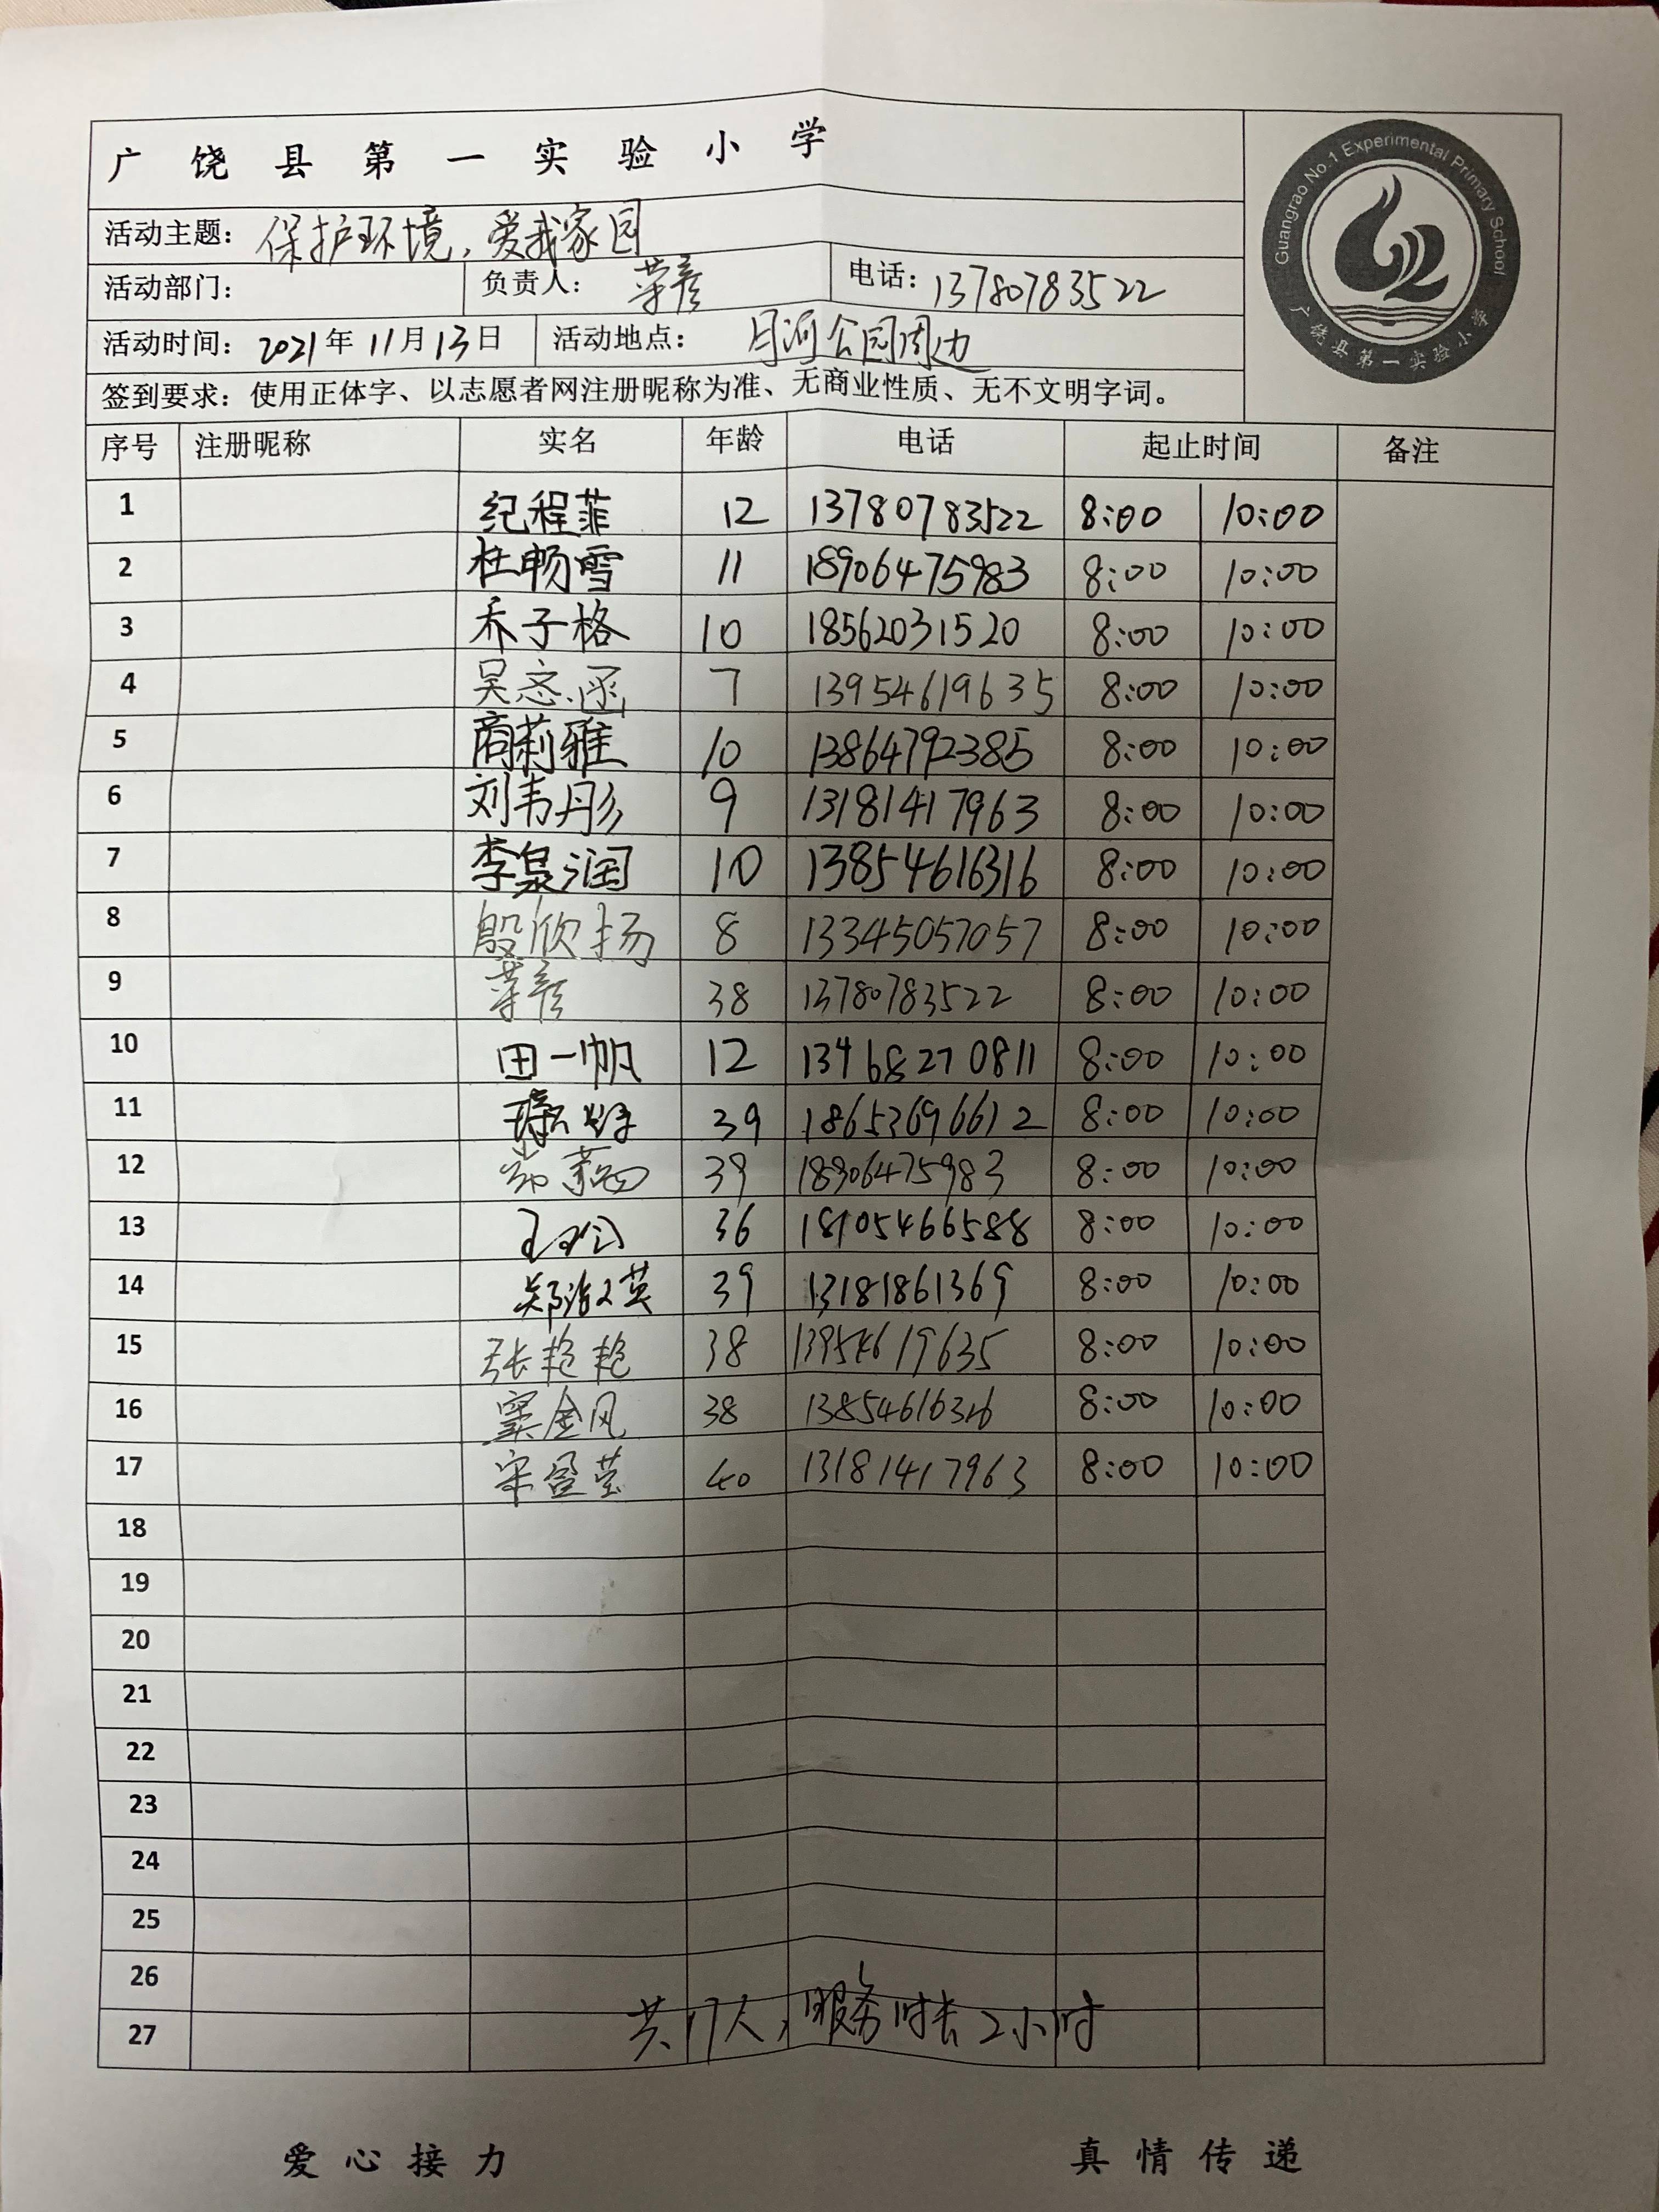 广饶县第一实验小学
Guangrao No.1 Experimental Primary School
广饶县第一实验小学
活动主题：保护环境，爱我家园
活动部门： 负责人： 电话：13780783522
活动时间：2021年11月13日 活动地点：月河公园周边
签到要求：使用正体字、以志愿者网注册昵称为准、无商业性质、无不文明字词。
序号 注册昵称 实名 年龄 电话 起止时间 备注
1 纪程菲 12 13780783522 8:00 10:00
2 杜畅雪 11 18906475983 8:00 10:00
3 乔子格 10 18562031520 8:00 10:00
4 吴 函 7 13954619635 8:00 10:00
5 商莉雅 10 13864792385 8:00 10:00
6 刘韦彤 9 13181417963 8:00 10:00
7 李泉润 10 13854616316 8:00 10:00
8 殷欣扬 8 13345057057 8:00 10:00
9 38 13780783522 8:00 10:00
10 田一帆 12 13468270811 8:00 10:00
11 39 18653696612 8:00 10:00
12 39 18906475983 8:00 10:00
13 36 18105466588 8:00 10:00
14 39 13181861369 8:00 10:00
15 张艳艳 38 13954619635 8:00 10:00
16 窦金凤 38 13854616316 8:00 10:00
17 宋盈莹 40 13181417963 8:00 10:00
18
19
20
21
22
23
24
25
26
27 共17人，服务时长2小时
爱心接力 真情传递